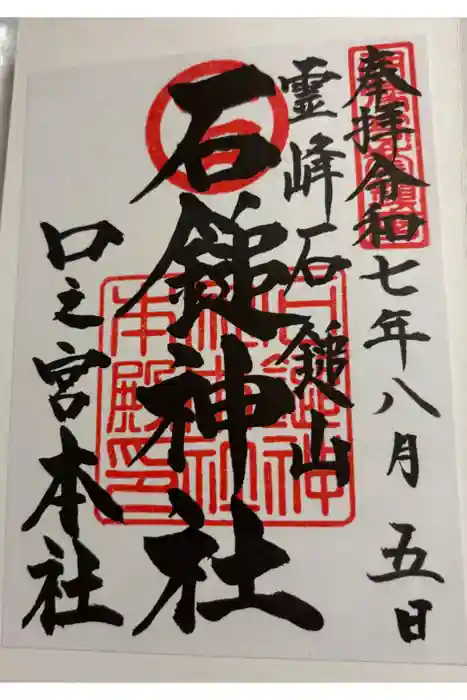 奉拝令和七年八月五日
霊峰石鎚山
石鎚神社
口之宮本社
石鎚神社本殿印